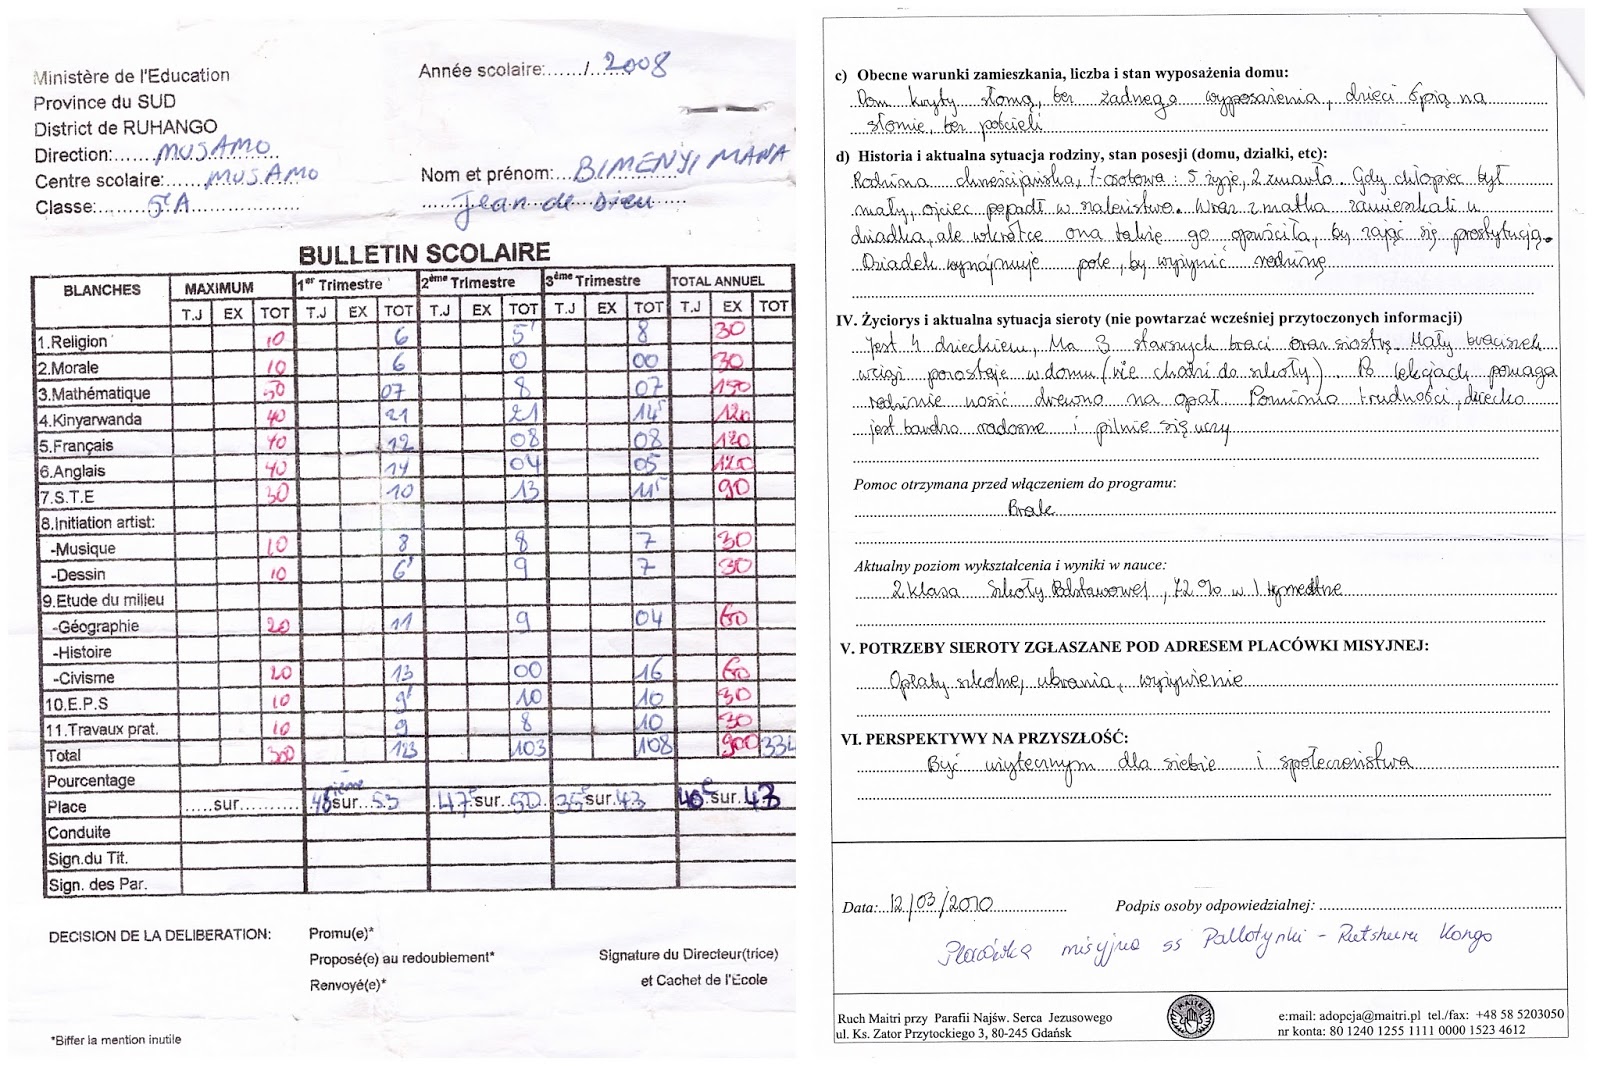 Ministère de l'Education
Province du SUD
District de RUHANGO
Direction:......MUSAMO
Centre scolaire:......MUSAMO
Classe:......5eA
Année scolaire:....../...2008
Nom et prénom:...BIMENYIMANA
Jean de Dieu
BULLETIN SCOLAIRE
BLANCHES MAXIMUM 1er Trimestre 2ème Trimestre 3ème Trimestre TOTAL ANNUEL
T.J EX TOT T.J EX TOT T.J EX TOT T.J EX TOT T.J EX TOT
1.Religion 10 6 5 8 30
2.Morale 10 6 0 00 30
3.Mathématique 50 07 8 07 150
4.Kinyarwanda 40 21 21 14 120
5.Français 40 12 08 08 120
6.Anglais 40 14 04 05 120
7.S.T.E 30 10 13 11 90
8.Initiation artist:
-Musique 10 8 8 7 30
-Dessin 10 6 9 7 30
9.Etude du milieu
-Géographie 20 11 9 04 60
-Histoire
-Civisme 20 13 00 16 60
10.E.P.S 10 9 10 10 30
11.Travaux prat. 10 9 8 10 30
Total 300 123 103 108 900 334
Pourcentage
Place .....sur.......... 48ième sur 53 47e sur 50 35e sur 43 40e sur 43
Conduite
Sign.du Tit.
Sign. des Par.
DECISION DE LA DELIBERATION:
Promu(e)*
Proposé(e) au redoublement*
Renvoyé(e)*
Signature du Directeur(trice)
et Cachet de l'Ecole
*Biffer la mention inutile
c) Obecne warunki zamieszkania, liczba i stan wyposażenia domu:
Dom kryty słomą, bez żadnego wyposażenia, dzieci śpią na
słomie, bez pościeli
d) Historia i aktualna sytuacja rodziny, stan posesji (domu, działki, etc):
Rodzina chrześcijańska, 7-osobowa: 5 żyje, 2 zmarło. Gdy chłopiec był
mały, ojciec popadł w szaleństwo. Wraz z matką zamieszkali u
dziadka, ale wkrótce ona także go opuściła, by zająć się prostytucją.
Dziadek wynajmuje pole, by wyżywić rodzinę
IV. Życiorys i aktualna sytuacja sieroty (nie powtarzać wcześniej przytoczonych informacji)
Jest 4 dzieckiem, Ma 3 starszych braci oraz siostrę. Mały braciszek
wciąż pozostaje w domu (nie chodzi do szkoły). Po lekcjach pomaga
rodzinie nosić drewno na opał. Pomimo trudności, dziecko
jest bardzo radosne i pilnie się uczy
Pomoc otrzymana przed włączeniem do programu:
Brak
Aktualny poziom wykształcenia i wyniki w nauce:
2 klasa Szkoły Podstawowej, 72 % w I trymestrze
V. POTRZEBY SIEROTY ZGŁASZANE POD ADRESEM PLACÓWKI MISYJNEJ:
Opłaty szkolne, ubrania, wyżywienie
VI. PERSPEKTYWY NA PRZYSZŁOŚĆ:
Być użytecznym dla siebie i społeczeństwa
Data: 12/03/2010
Podpis osoby odpowiedzialnej:
Placówka misyjna ss Pallotynki - Rutshuru Kongo
Ruch Maitri przy Parafii Najśw. Serca Jezusowego
ul. Ks. Zator Przytockiego 3, 80-245 Gdańsk
MAITRI
e:mail: adopcja@maitri.pl tel./fax: +48 58 5203050
nr konta: 80 1240 1255 1111 0000 1523 4612